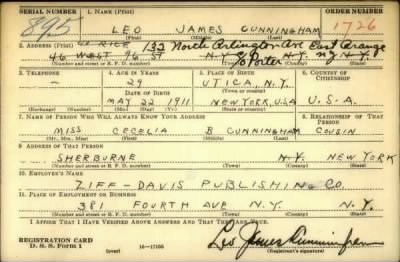 SERIAL NUMBER 1. NAME (Print) ORDER NUMBER
895 LEO JAMES CUNNINGHAM 1726
2. ADDRESS (Print) 132 North Arlington Ave East Orange
46 WEST 96 ST N.Y. N.Y. N.J.
(Number and street or R. F. D. number) (Town) (County) (State)
3. TELEPHONE 4. AGE IN YEARS 5. PLACE OF BIRTH 6. COUNTRY OF CITIZENSHIP
– 29 UTICA, N.Y.
DATE OF BIRTH (Town or county)
MAY 22 1911 NEW YORK, U.S.A U.S.A.
(Exchange) (Number) (Mo.) (Day) (Yr.) (State or country)
7. NAME OF PERSON WHO WILL ALWAYS KNOW YOUR ADDRESS 8. RELATIONSHIP OF THAT PERSON
MISS CECELIA B CUNNINGHAM COUSIN
(Mr., Mrs., Miss) (First) (Middle) (Last)
9. ADDRESS OF THAT PERSON
SHERBURNE N.Y. NEW YORK
(Number and street or R. F. D. number) (Town) (County) (State)
10. EMPLOYER'S NAME
ZIFF–DAVIS PUBLISHING CO.
11. PLACE OF EMPLOYMENT OR BUSINESS
381 FOURTH AVE N.Y. N.Y.
(Number and street or R. F. D. number) (Town) (County) (State)
I AFFIRM THAT I HAVE VERIFIED ABOVE ANSWERS AND THAT THEY ARE TRUE.
REGISTRATION CARD
D. S. S. Form 1 (over) 16—17105 Leo James Cunningham
(Registrant's signature)